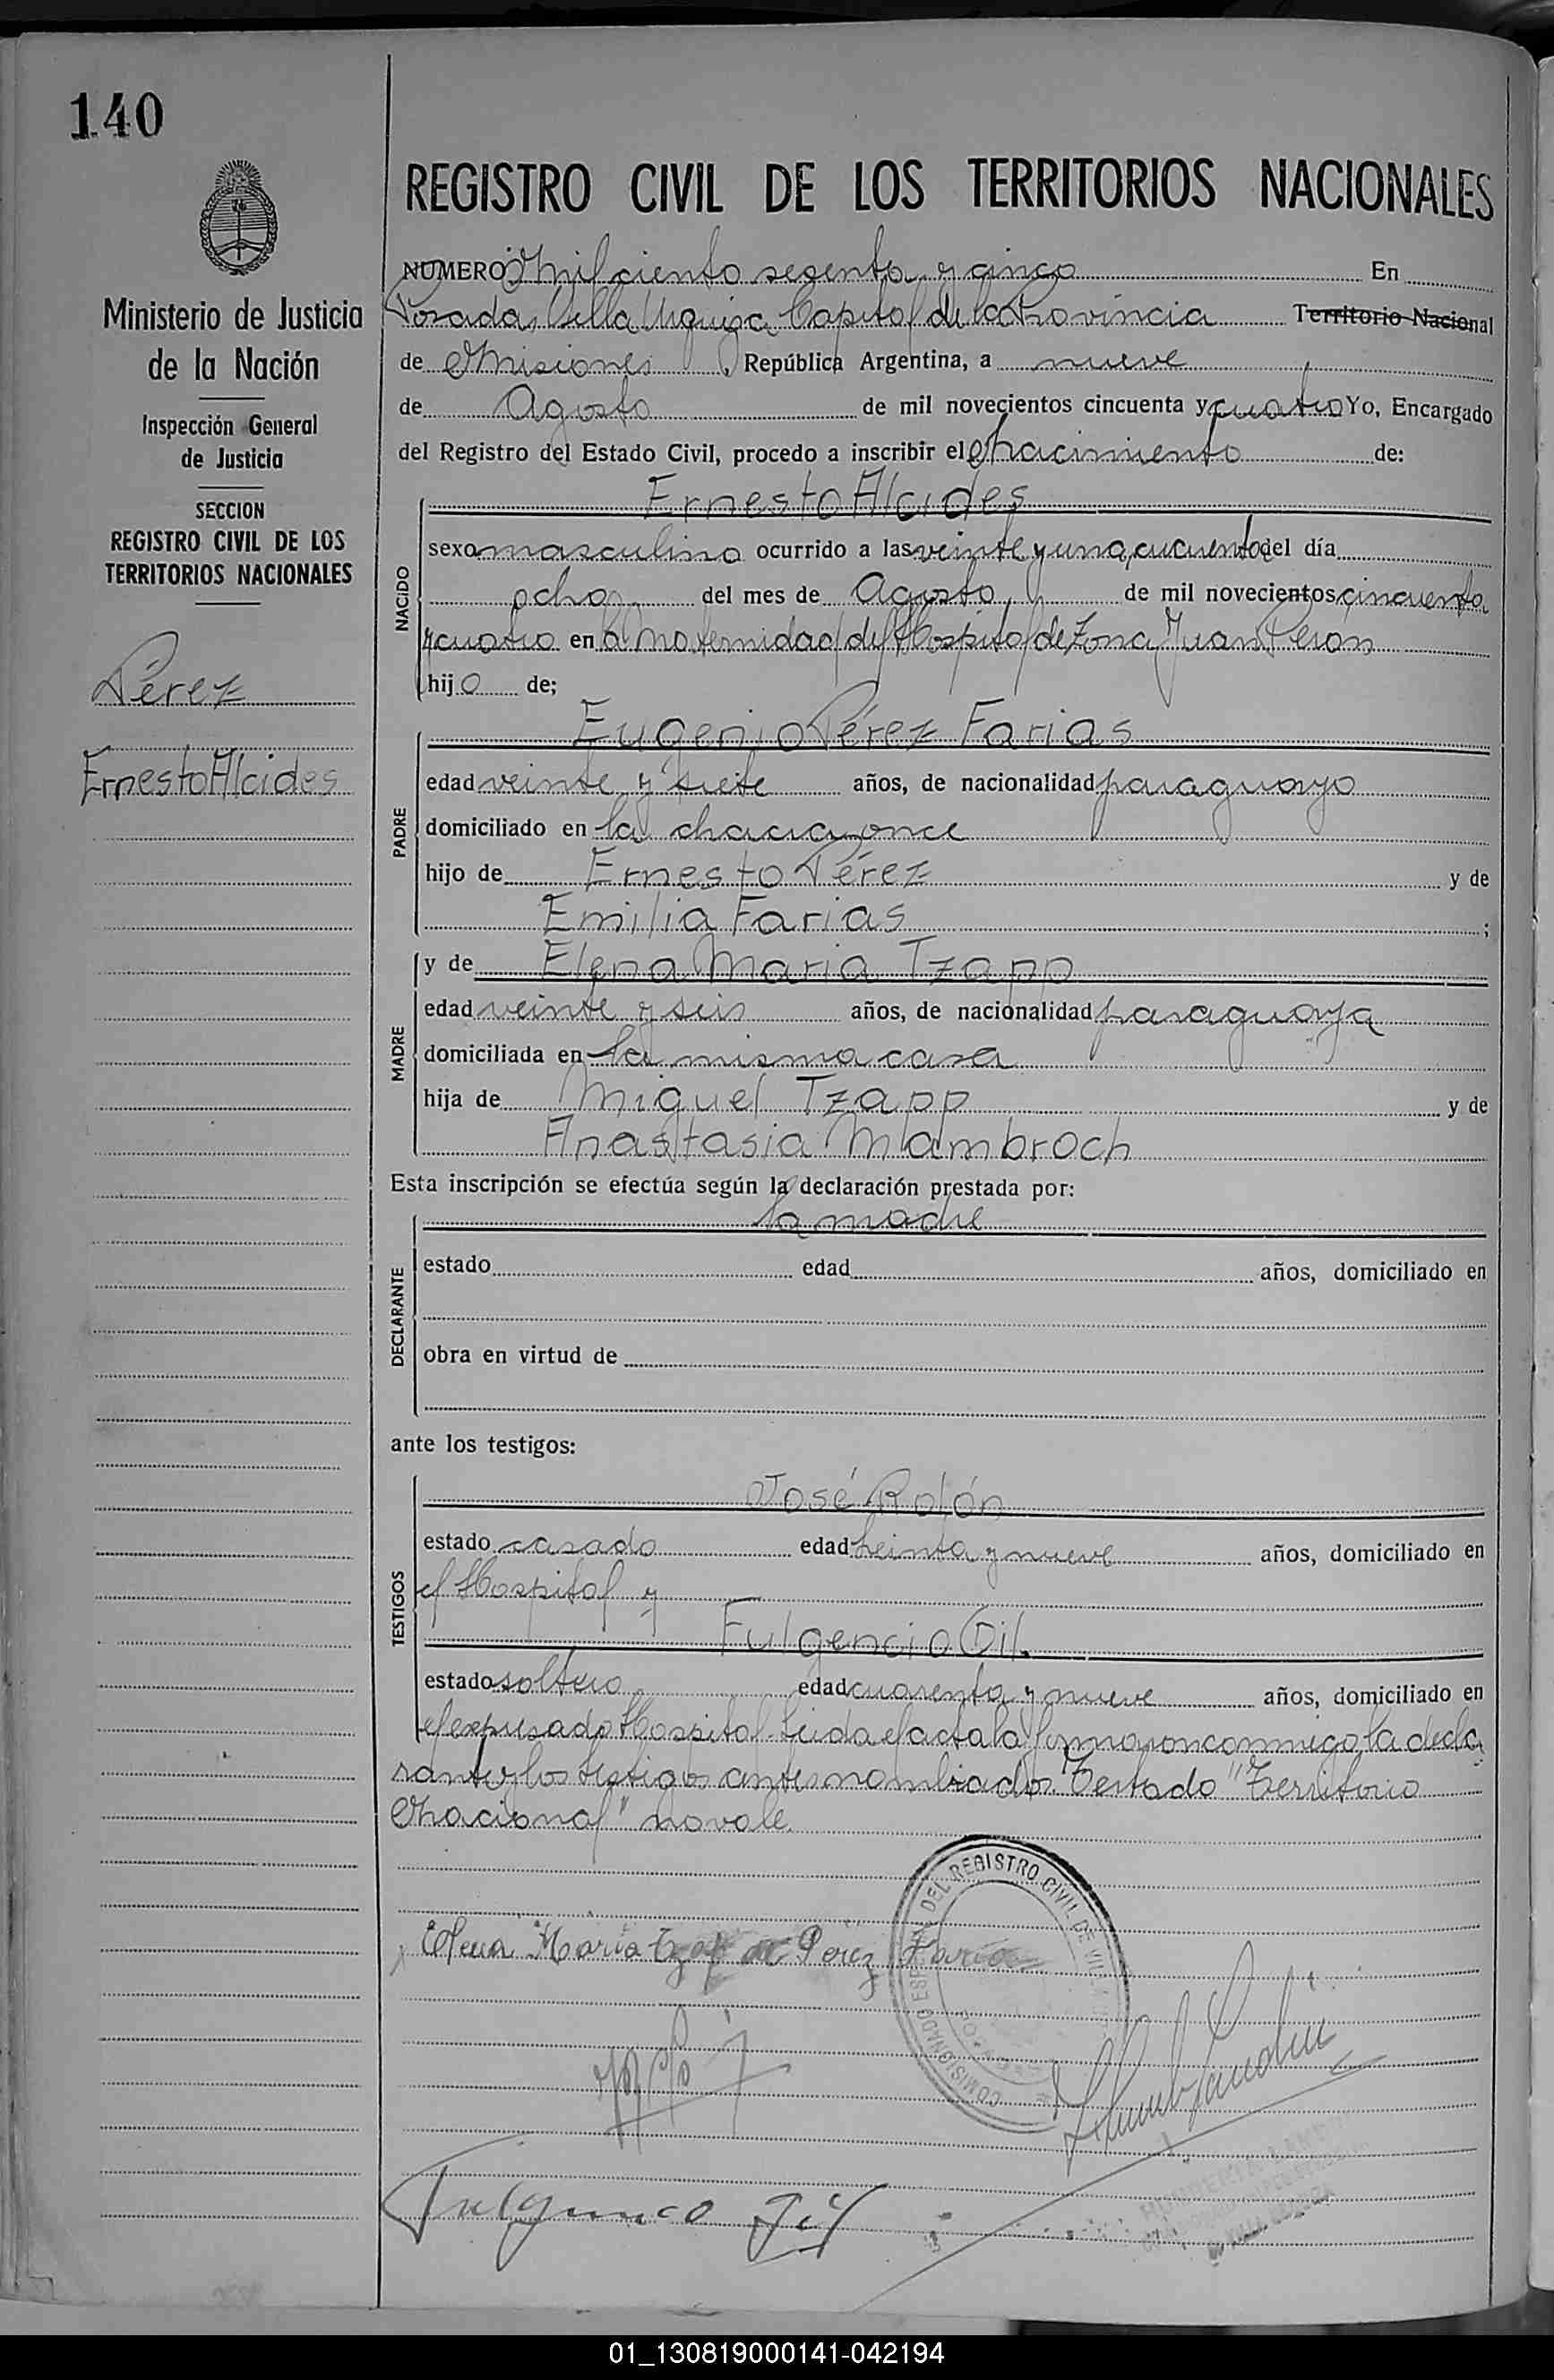 140
Ministerio de Justicia
de la Nación
Inspección General
de Justicia
SECCION
REGISTRO CIVIL DE LOS
TERRITORIOS NACIONALES
Pérez
Ernesto Alcides
REGISTRO CIVIL DE LOS TERRITORIOS NACIONALES
NUMERO Mil ciento sesenta y cinco En
Posadas Villa Urquiza Capital de la Provincia Territorio Nacional
de Misiones, República Argentina, a nueve
de Agosto de mil novecientos cincuenta y cuatro Yo, Encargado
del Registro del Estado Civil, procedo a inscribir el Nacimiento de:
NACIDO
Ernesto Alcides
sexo masculino ocurrido a las veinte y una, cincuenta del día
ocho del mes de Agosto, de mil novecientos cincuenta
y cuatro en la Maternidad del Hospital de Zona Juan Peron
hijo de;
PADRE
Eugenio Pérez Farias
edad veinte y siete años, de nacionalidad paraguayo
domiciliado en la chacra once
hijo de Ernesto Pérez y de
Emilia Farias;
MADRE
y de Elena Maria Tzapp
edad veinte y seis años, de nacionalidad paraguaya
domiciliada en la misma casa
hija de Miguel Tzapp y de
Anastasia Mambroch
Esta inscripción se efectúa según la declaración prestada por:
DECLARANTE
la madre
estado edad años, domiciliado en
obra en virtud de
ante los testigos:
TESTIGOS
José Rolón
estado casado edad treinta y nueve años, domiciliado en
el Hospital y
Fulgencio Gil.
estado soltero edad cuarenta y nueve años, domiciliado en
el expresado Hospital. Leida el acta la firmaron conmigo, la decla
rante y los testigos antes nombrados. Testado "Territorio
Nacional" no vale.
Elena Maria Pérez Farias
COMISIONADO ESPECIAL DEL REGISTRO CIVIL DE
Fulgencio Gil
01_130819000141-042194